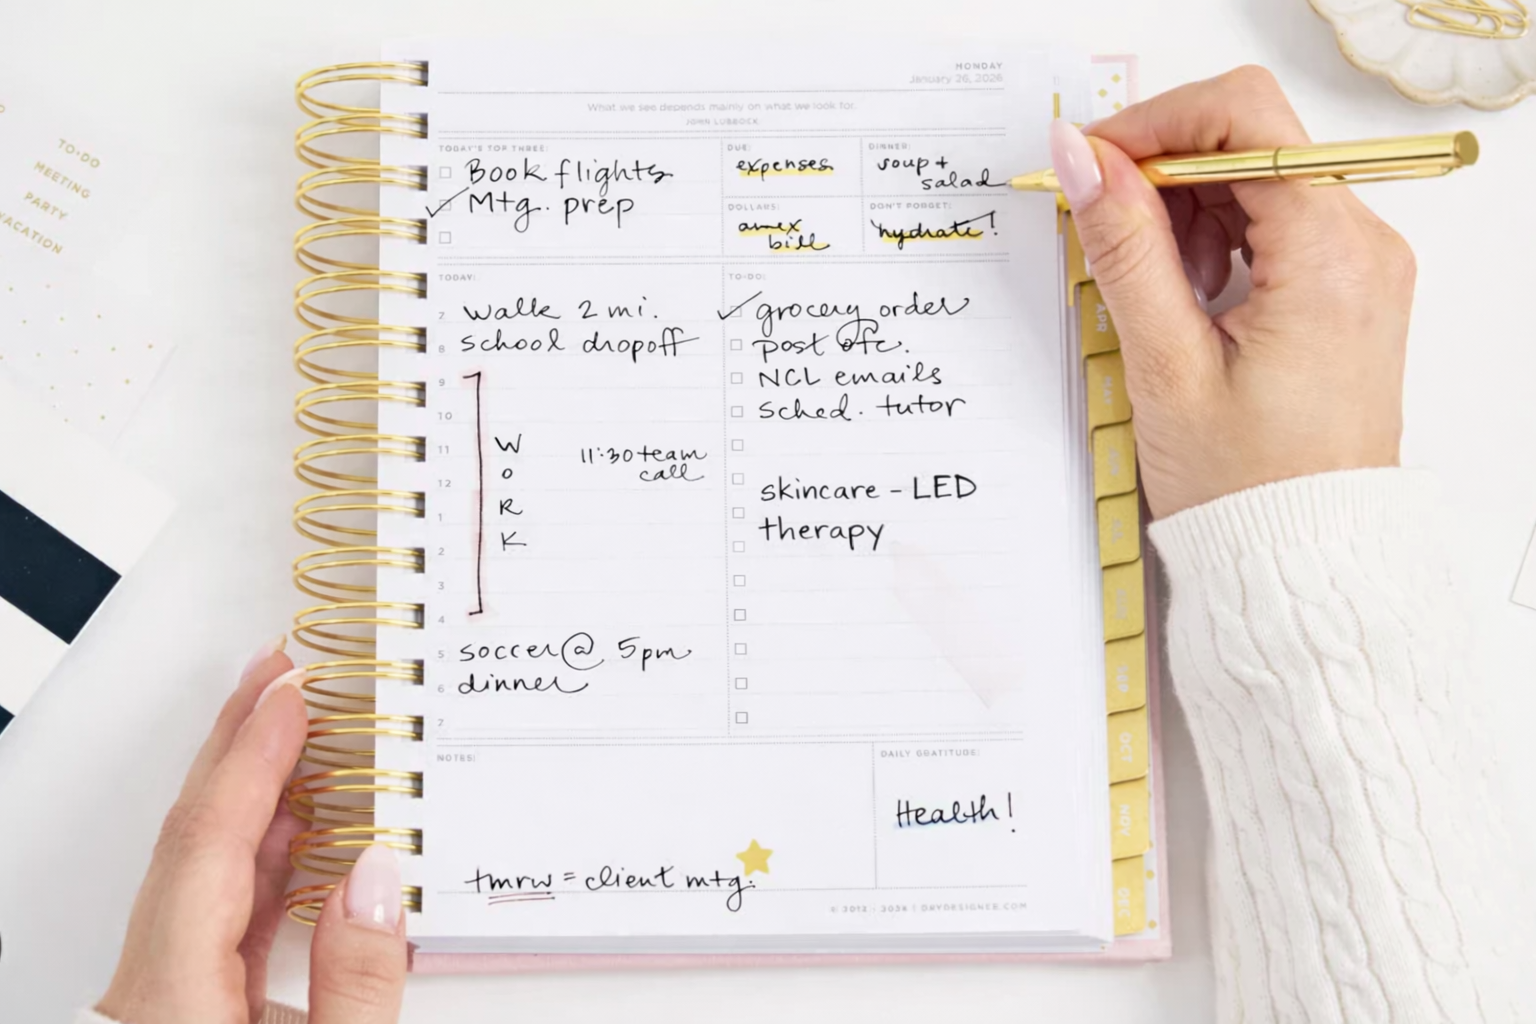 TO·DO
MEETING
PARTY
VACATION
MONDAY
January 26, 2026
What we see depends mainly on what we look for.
JOHN LUBBOCK
TODAY'S TOP THREE:
Book flights
Mtg. prep
DUE:
expenses
DINNER:
soup +
salad
DOLLARS:
amex
bill
DON'T FORGET:
hydrate!
TODAY:
7 walk 2 mi.
8 school dropoff
9
10
11
12
1
2
3
4
W
O
R
K
11:30 team
call
5 soccer @ 5pm
6 dinner
7
TO-DO:
grocery order
post ofc.
NCL emails
sched. tutor
skincare - LED
therapy
NOTES:
tmrw = client mtg.
DAILY GRATITUDE:
Health!
APR
MAY
SEP
OCT
NOV
DEC